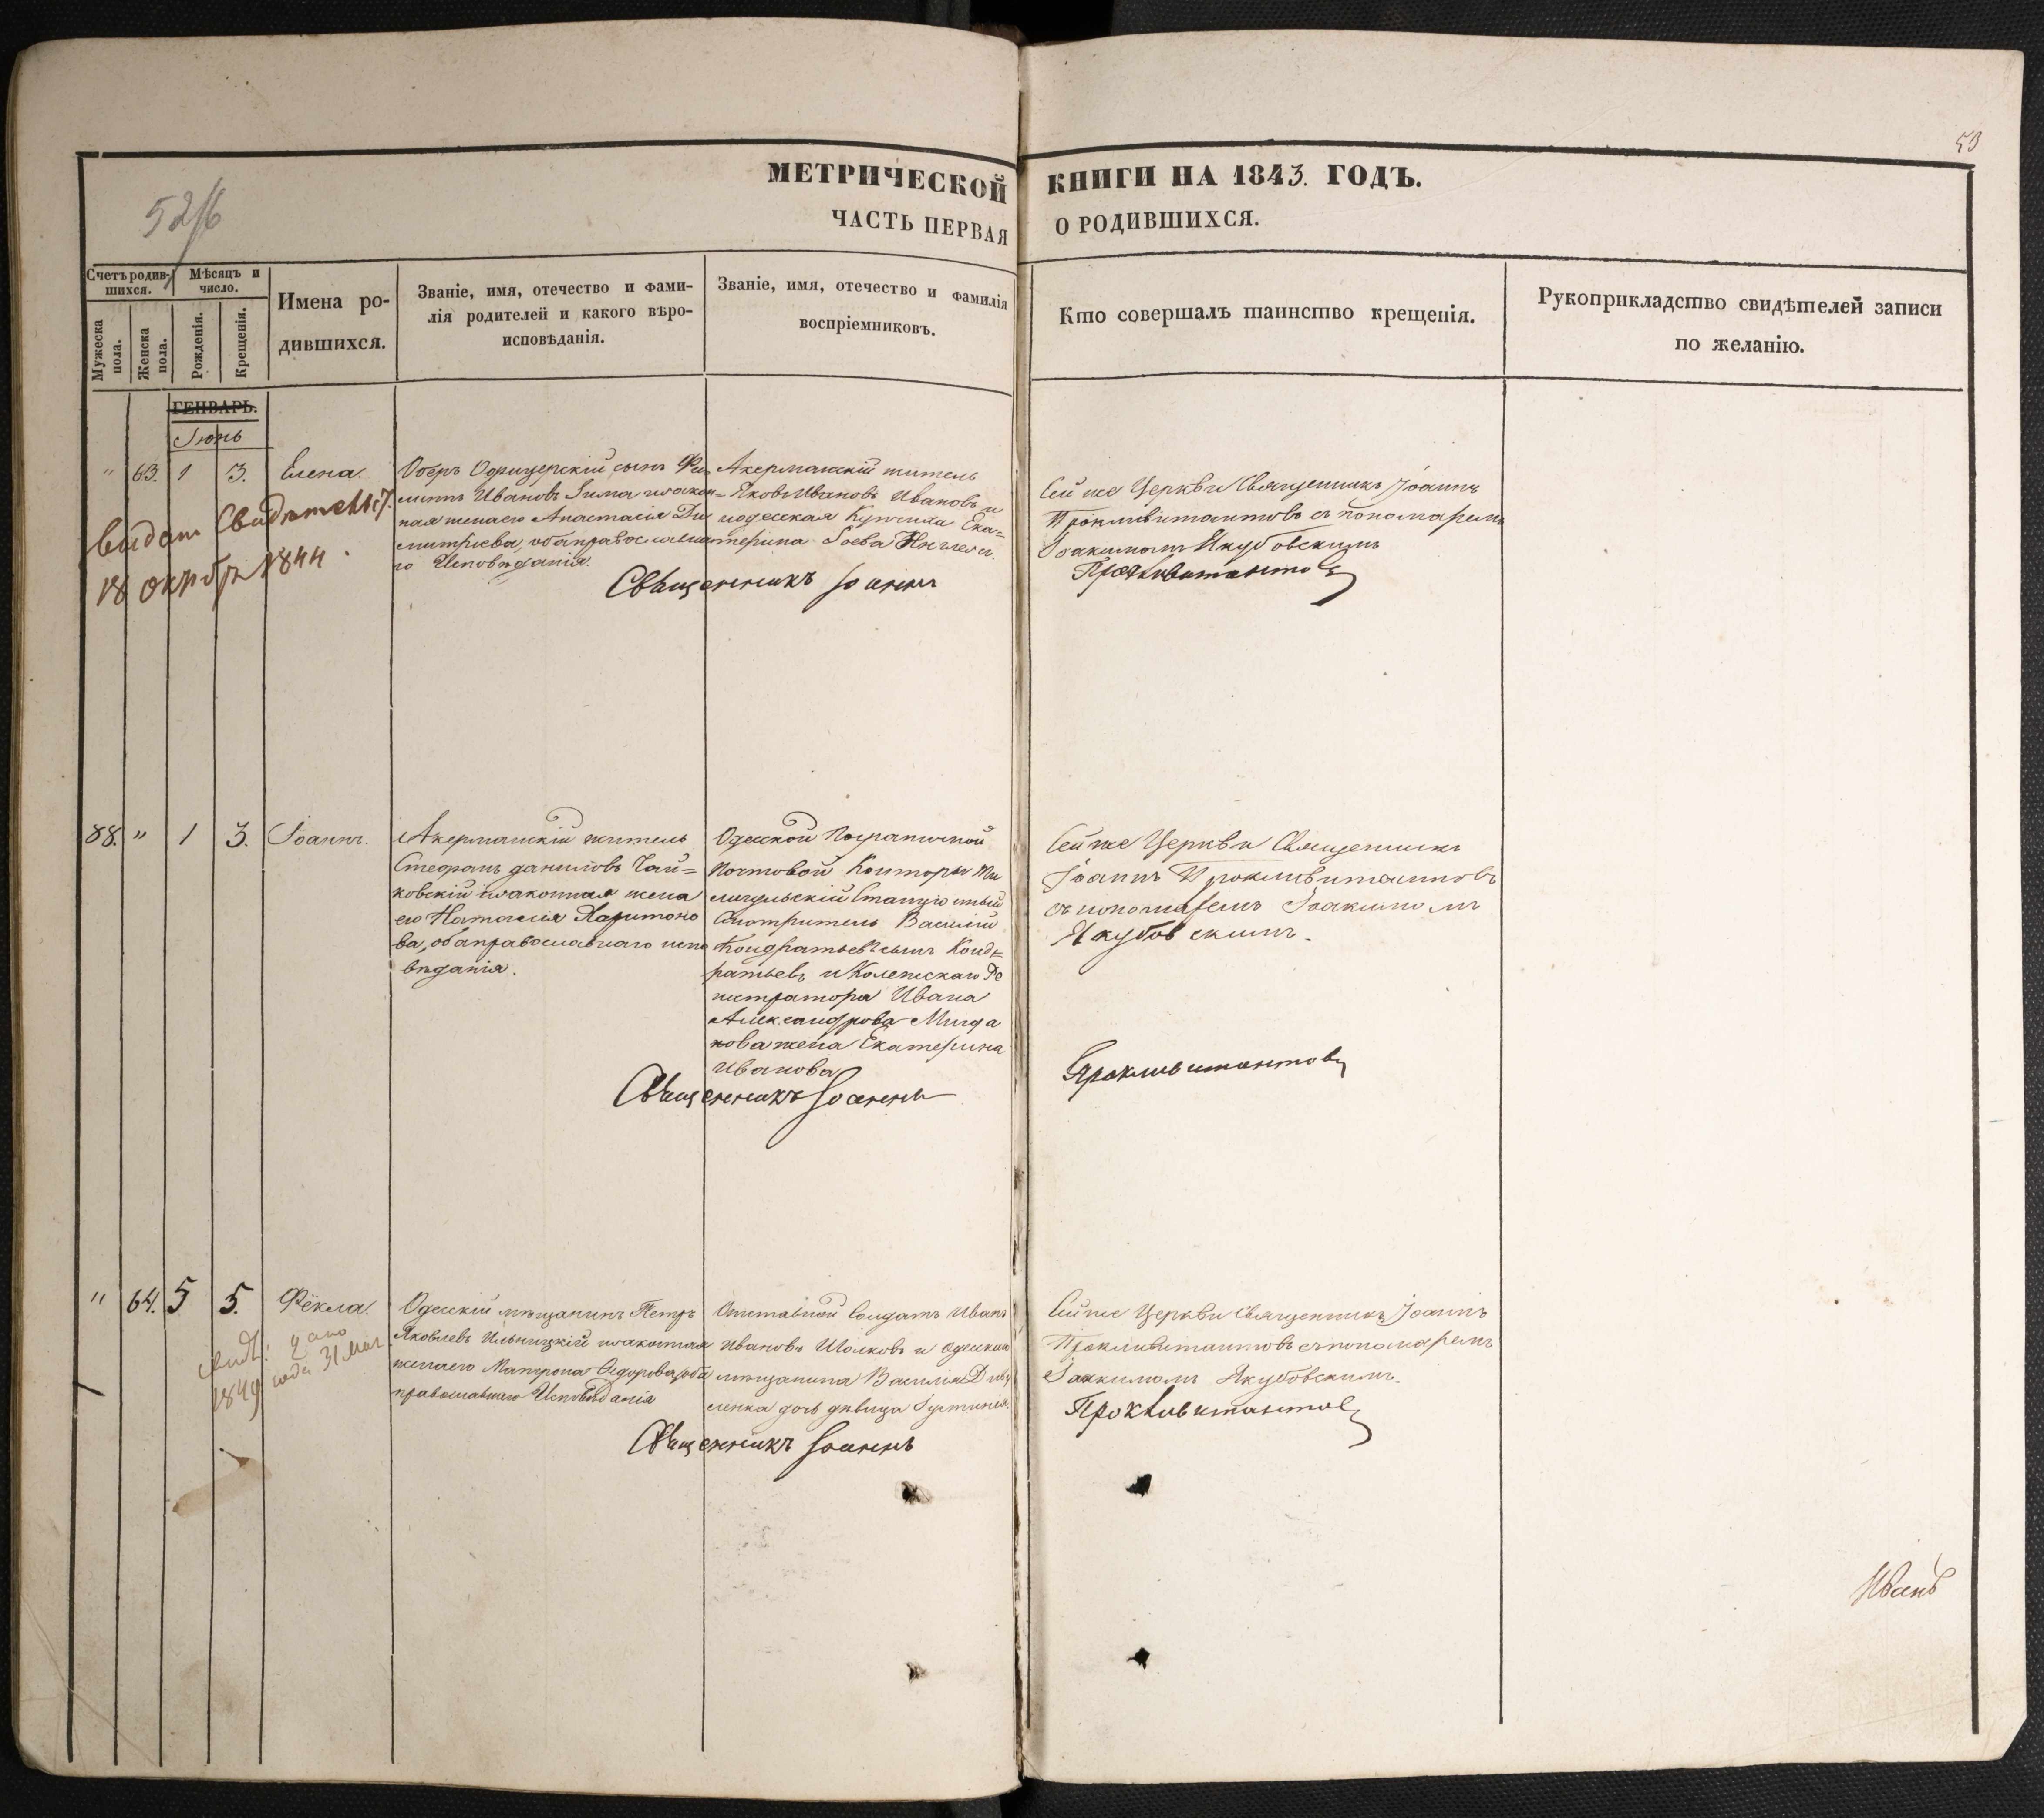 53
МЕТРИЧЕСКОЙ КНИГИ НА 1843. ГОДЪ.
ЧАСТЬ ПЕРВАЯ О РОДИВШИХСЯ.
Счетъ родив-
шихся.
Мужеска
пола.
Женска
пола.
Мѣсяцъ и
число.
Рожденія.
Крещенія.
Имена ро-
дившихся.
Званіе, имя, отечество и фами-
лія родителей и какого вѣро-
исповѣданія.
Званіе, имя, отечество и фамилія
воспріемниковъ.
Кто совершалъ таинство крещенія.
Рукоприкладство свидѣтелей записи
по желанію.
ГЕНВАРЬ.
Іюнь
" 63. 1 3. Елена.
Оберъ Офицерскій сынъ Фи
липпъ Ивановъ Зима и законн=
ная жена его Анастасія Ди
митріева, оба православна
го Исповѣданія.
Акерманскій житель
Яковъ Ивановъ Ивановъ и
одесская Купчиха Ека=
терина
Сей же Церкви Священникъ Іоаннъ
Проклвитантовъ съ пономаремъ
Іоакимомъ Якубовскимъ
Священникъ Іоаннъ Проклвитантовъ
18 октябр 1844.
88. " 1 3. Іоаннъ.
Акерманскій житель
Стефанъ даниловъ Чай=
ковскій и законная жена
его Наталія Харитоно
ва, оба православнаго испо
вѣданія.
Одесской Пограничной
Почтовой Конторы Ти
лигульскій Станціонный
Смотритель Василій
Кондратьевъ сынъ Конд=
ратьевъ и Колежскаго Ре
гистратора Ивана
Александрова
жена Екатерина
Иванова
Сей же Церкви Священникъ
Іоаннъ Проклвитантовъ
съ пономаремъ Іоакимомъ
Якубовскимъ.
Священникъ Іоаннъ Проклвитантовъ
" 64. 5 5. Ѳёкла.
Одесскій мѣщанинъ Петръ
Яковлевъ Ильницкій и законная
жена его Матрона Ѳедорова, оба
православнаго Исповѣданія
Отставной Солдатъ Иванъ
Ивановъ Шолковъ и одесскаго
мѣщанина Василія
дочь дѣвица Іустинія.
Сей же Церкви Священникъ Іоаннъ
Проклвитантовъ съ пономаремъ
Іоакимомъ Якубовскимъ.
Священникъ Іоаннъ Проклвитантовъ
1849 года 31 Мая
Иванъ